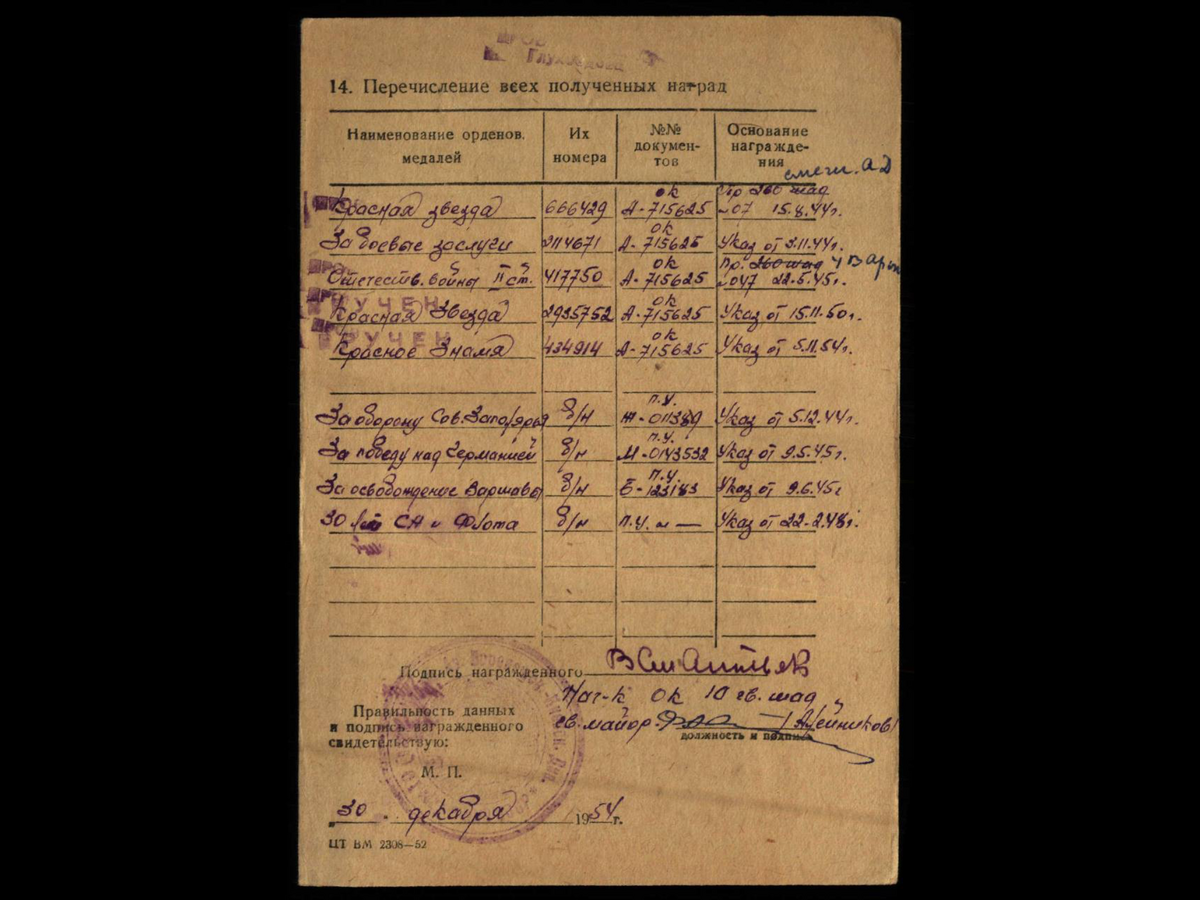 14. Перечисление всех полученных наград
Наименование орденов, медалей Их номера №№ документов Основание награждения
смеш. АД
Красная звезда 666429 ок А-715625 Пр. 260 шад №07 15.8.44г.
За боевые заслуги 2114671 ок А-715625 Указ от 3.11.44г.
Отечеств. войны II ст. 417750 ок А-715625 Пр. 260 шад №047 22.5.45г.
Красная Звезда 2935752 ок А-715625 Указ от 15.11.50г.
Красное Знамя 434914 ок А-715625 Указ от 5.11.54г.
За оборону Сов. Заполярья б/н п.у. Указ от 5.12.44г.
За победу над Германией б/н п.у. М-0143532 Указ от 9.5.45г.
За освобождение Варшавы б/н п.у. Указ от 9.6.45г
30 лет СА и Флота б/н п.у. — Указ от 22.2.48г.
Подпись награжденного
Нач-к ОК 10 гв. шад
Правильность данных и подпись награжденного свидетельствую:
гв. майор /Алейников/
должность и подпись
М. П.
"30" декабря 1954г.
ЦТ ВМ 2308—52